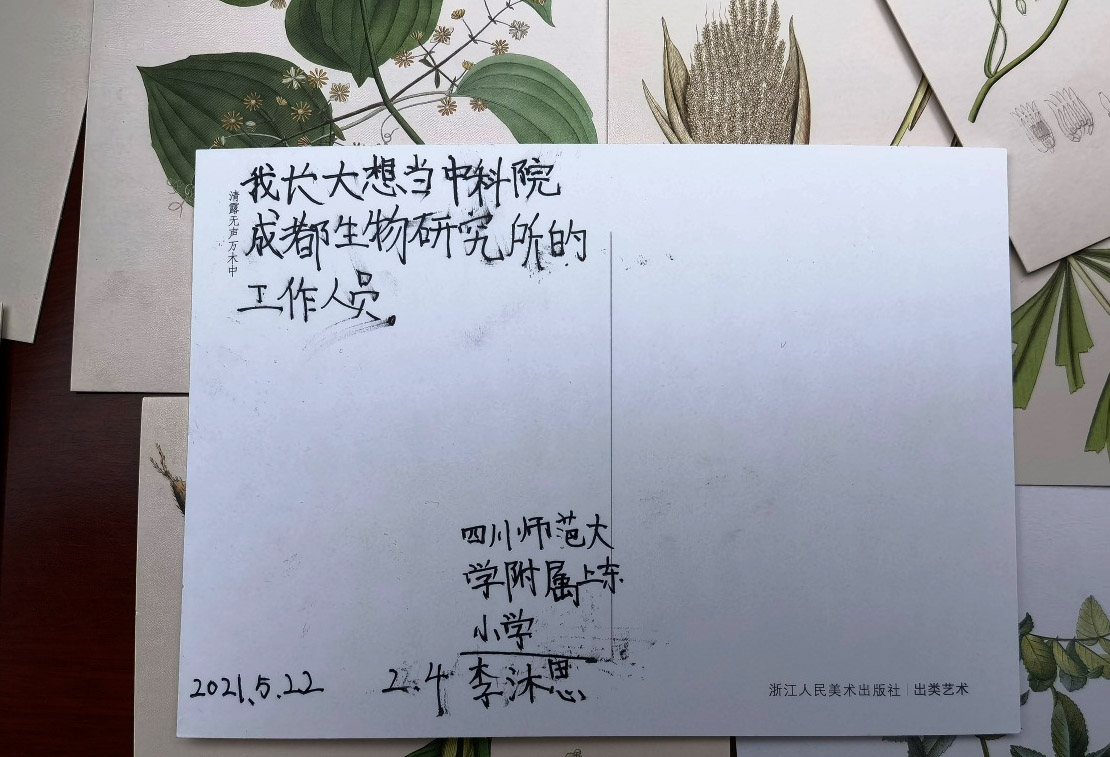 清露无声万木中
我长大想当中科院
成都生物研究所的
工作人员
四川师范大
学附属上东
小学
2021.5.22 2.4 李沐思
浙江人民美术出版社|出类艺术